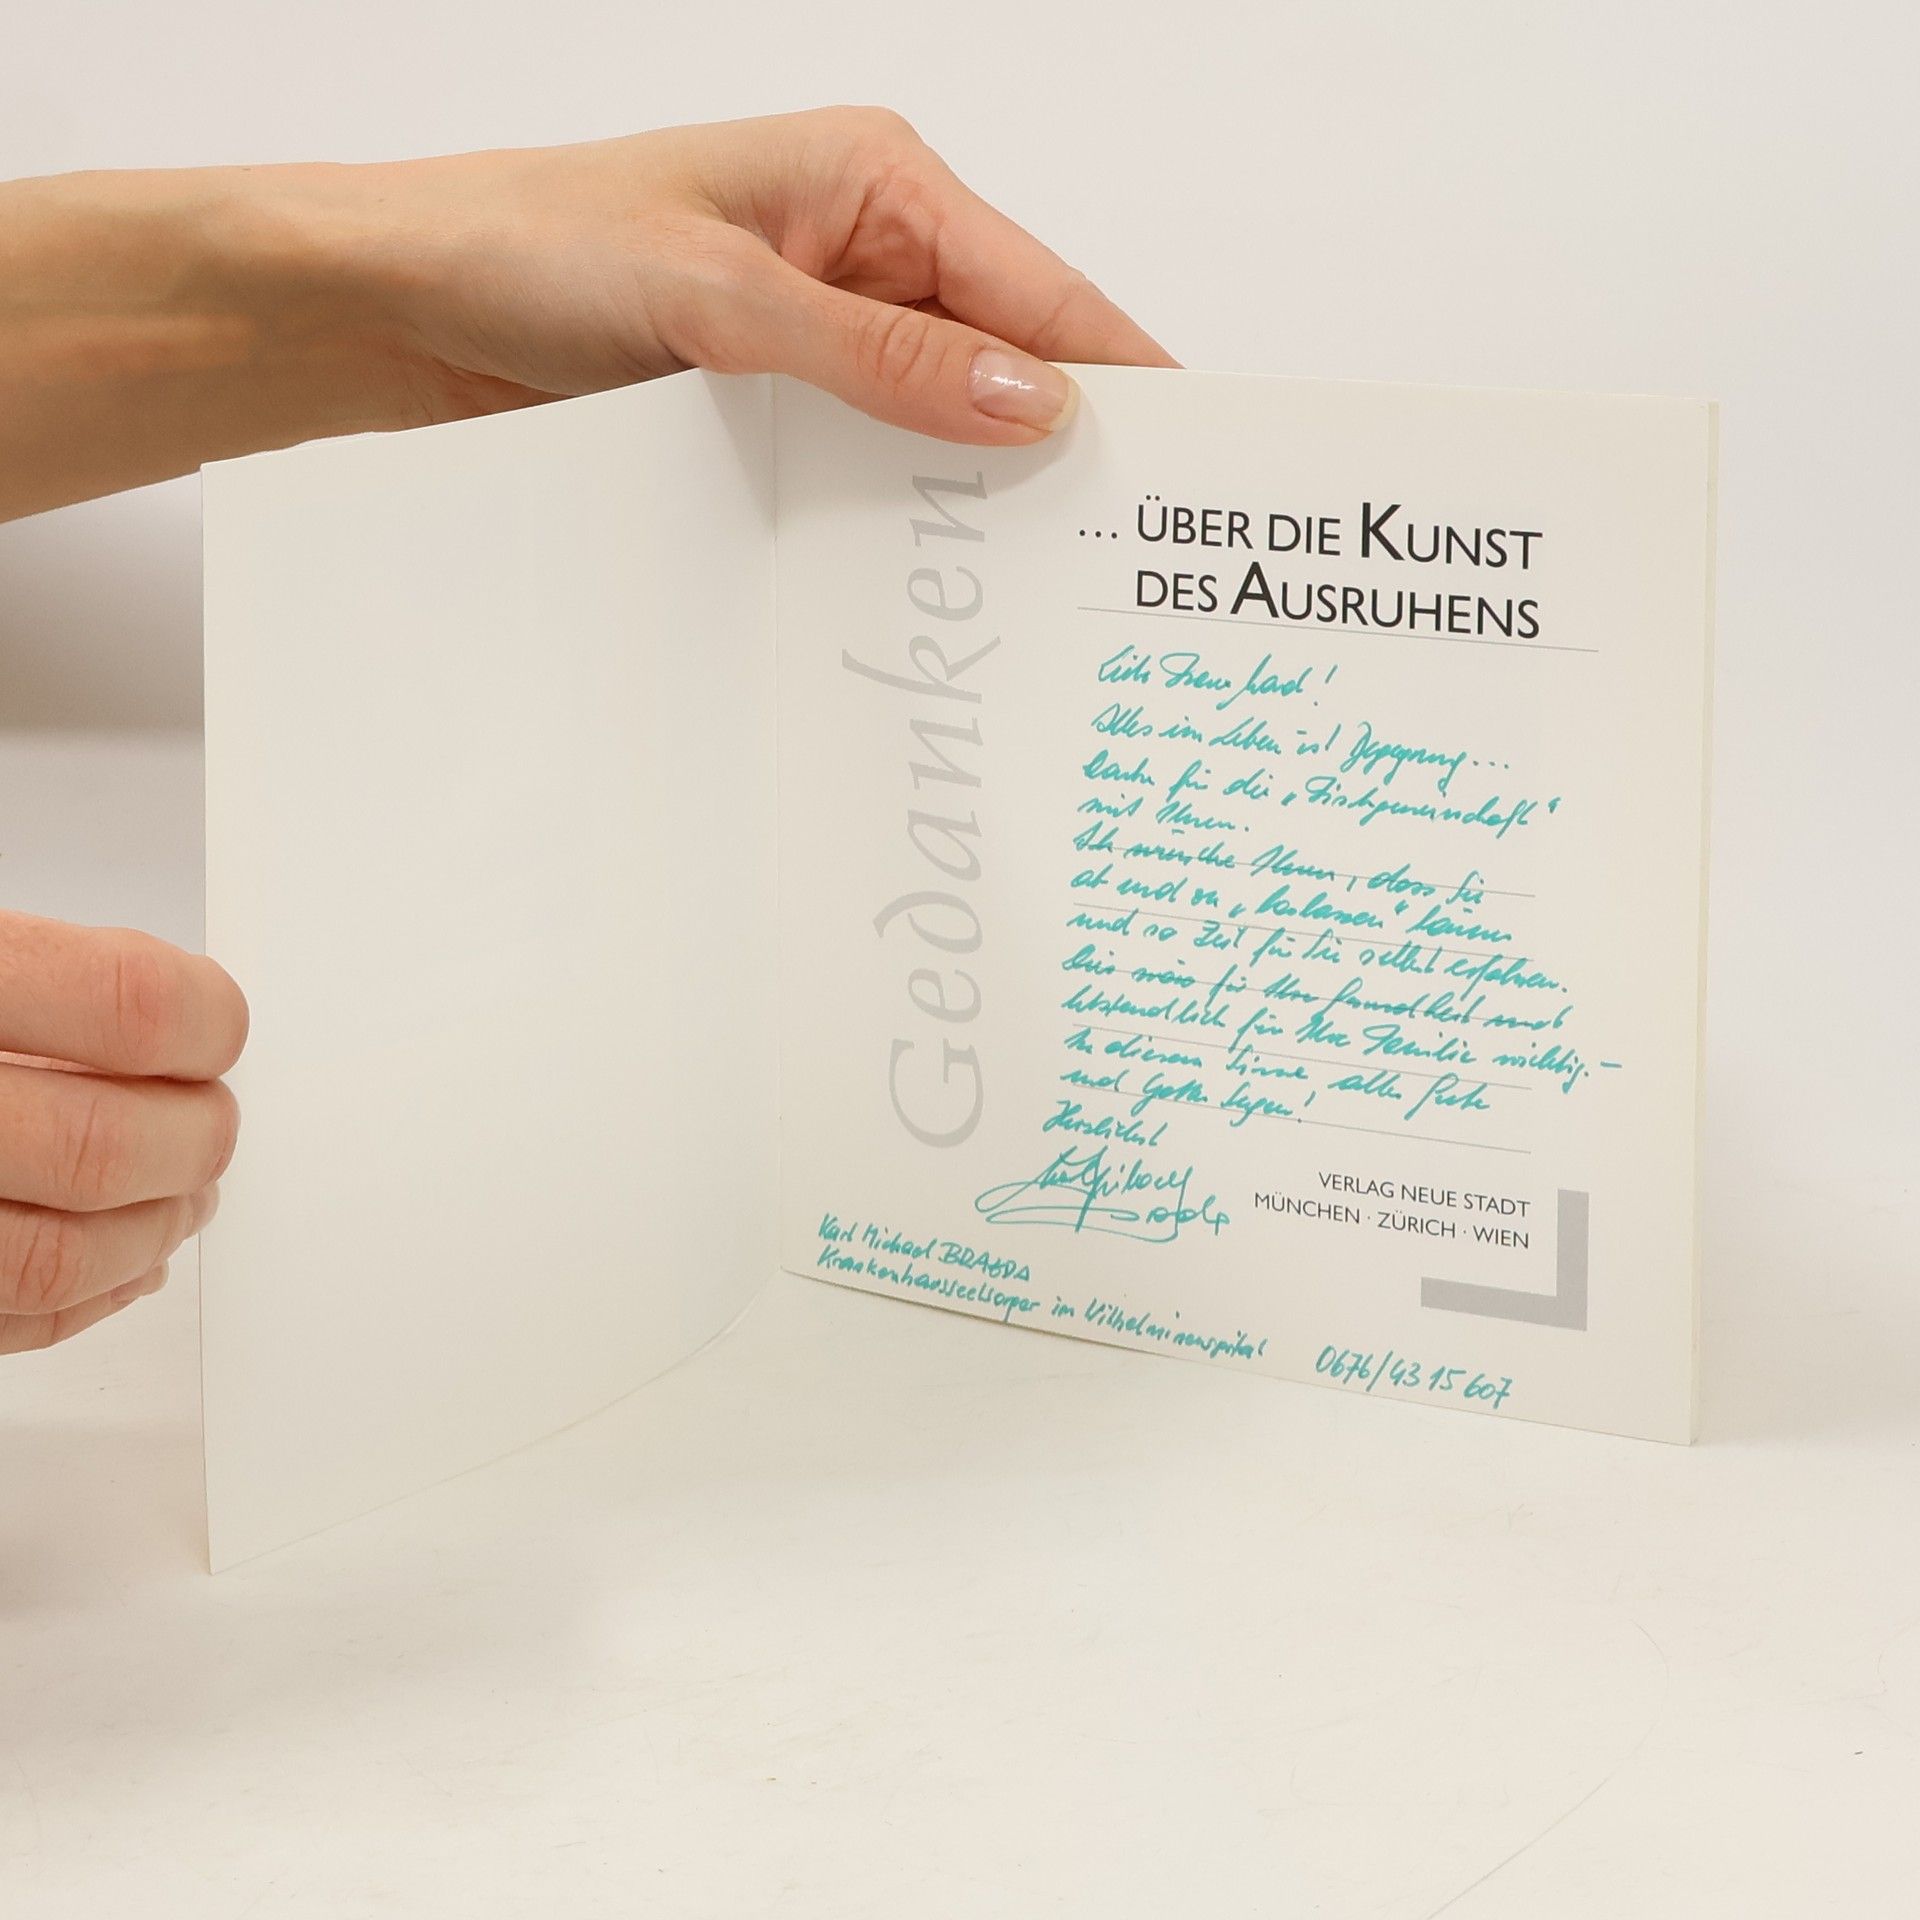 Gedanken
... ÜBER DIE KUNST
DES AUSRUHENS
Liebe Frau !
Alles im Leben ist Begegnung...
Danke für die „Tischgemeinschaft“
mit Ihnen.
Ich wünsche Ihnen, dass Sie
ab und zu „loslassen“ können
und so Zeit für Sie selbst erfahren.
Dies wäre für Ihre Gesundheit und
letztendlich für Ihre Familie wichtig. –
In diesem Sinne, alles Gute
und Gottes Segen!
Herzlichst
Karl Michael BRAZDA
Krankenhausseelsorger im Wilhelminenspital 0676/43 15 607
VERLAG NEUE STADT
MÜNCHEN · ZÜRICH · WIEN